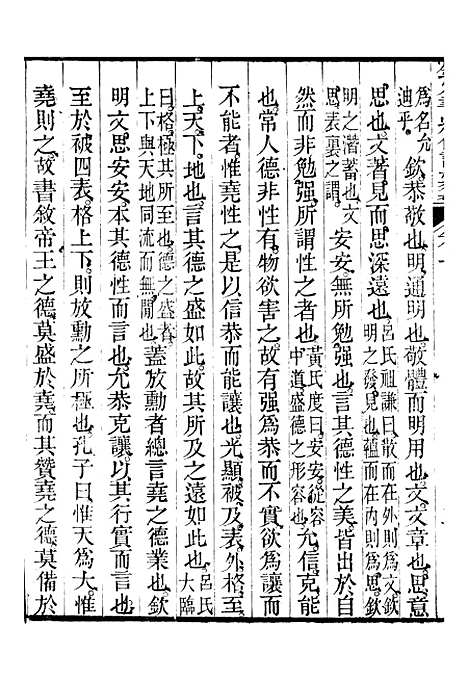 爲名允迪乎欽恭敬也明通明也敬體而明用也文文章也思意
思也文著見而思深遠也呂氏祖謙曰散而在外則爲文欽明之發見也蘊而在内則爲思欽
明之潛蓄也文思表裏之謂安安無所勉强也言其德性之美皆出於自
然而非勉强所謂性之者也黃氏度曰安安從容中道盛德之形容允信克能
也常人德非性有物欲害之故有强爲恭而不實欲爲讓而
不能者惟堯性之是以信恭而能讓也光顯被及表外格至
上天下地也言其德之盛如此故其所及之遠如此呂氏大臨
曰格格其所至也德之盛者上下與天地同流而無閒也蓋放勳者總言堯之德業也欽
明文思安安本其德性而言也允恭克讓以其行實而言也
至於被四表格上下則放勳之所極也孔子曰惟天爲大惟
堯則之故書敘帝王之德莫盛於堯而其贊堯之德莫備於